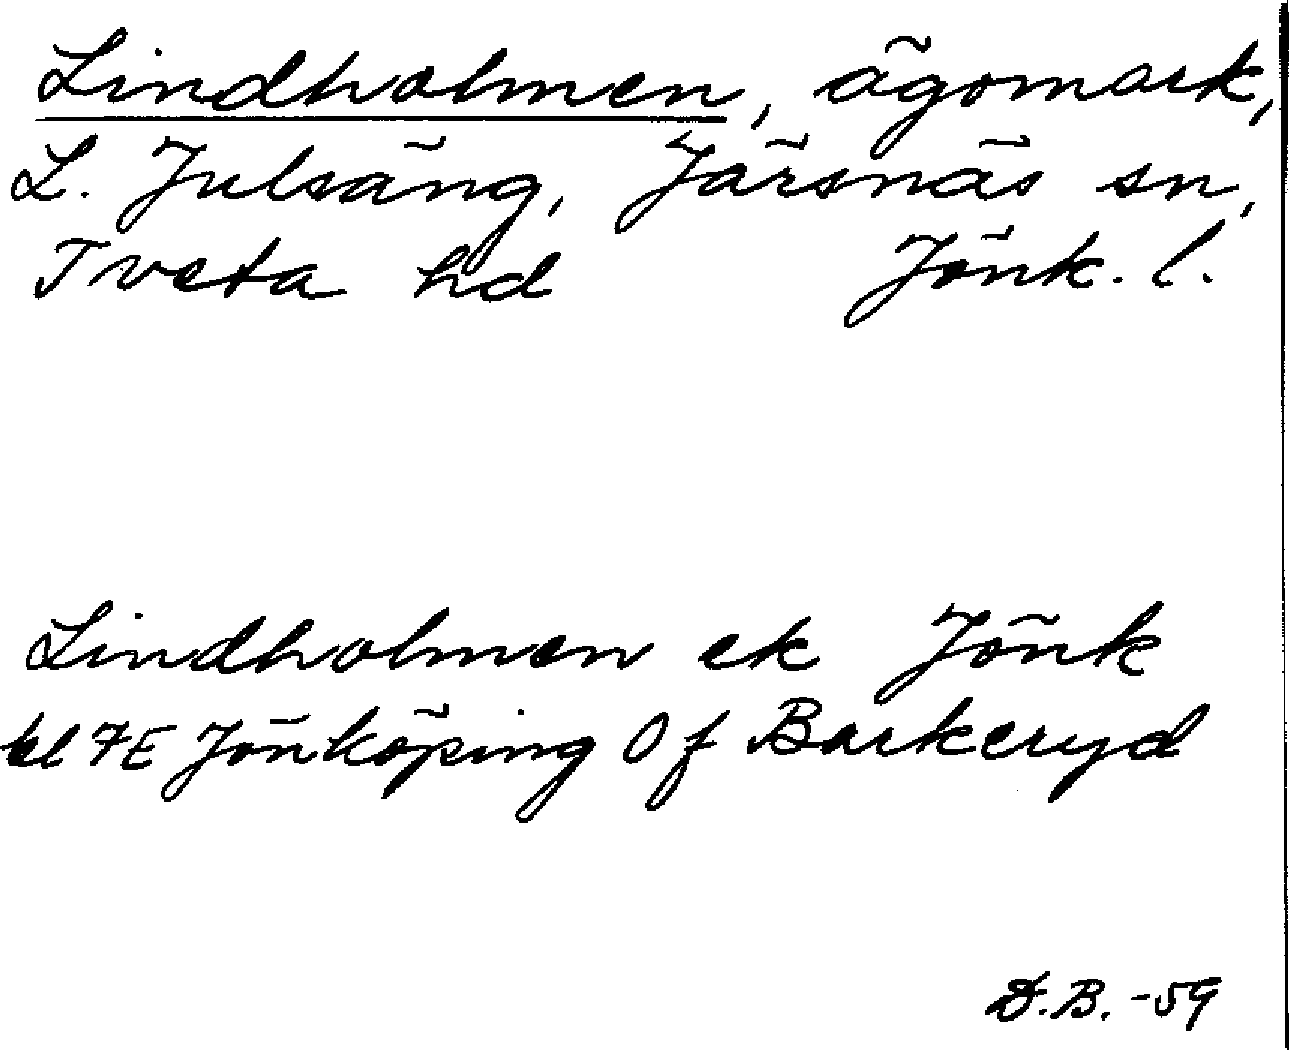 Lindholmen, ägomark,
L. Julsäng, Järsnäs sn,
Tveta hd Jönk. l.
Lindholmen ek Jönk
bl 7E Jönköping Of Barkeryd
D.B. -59